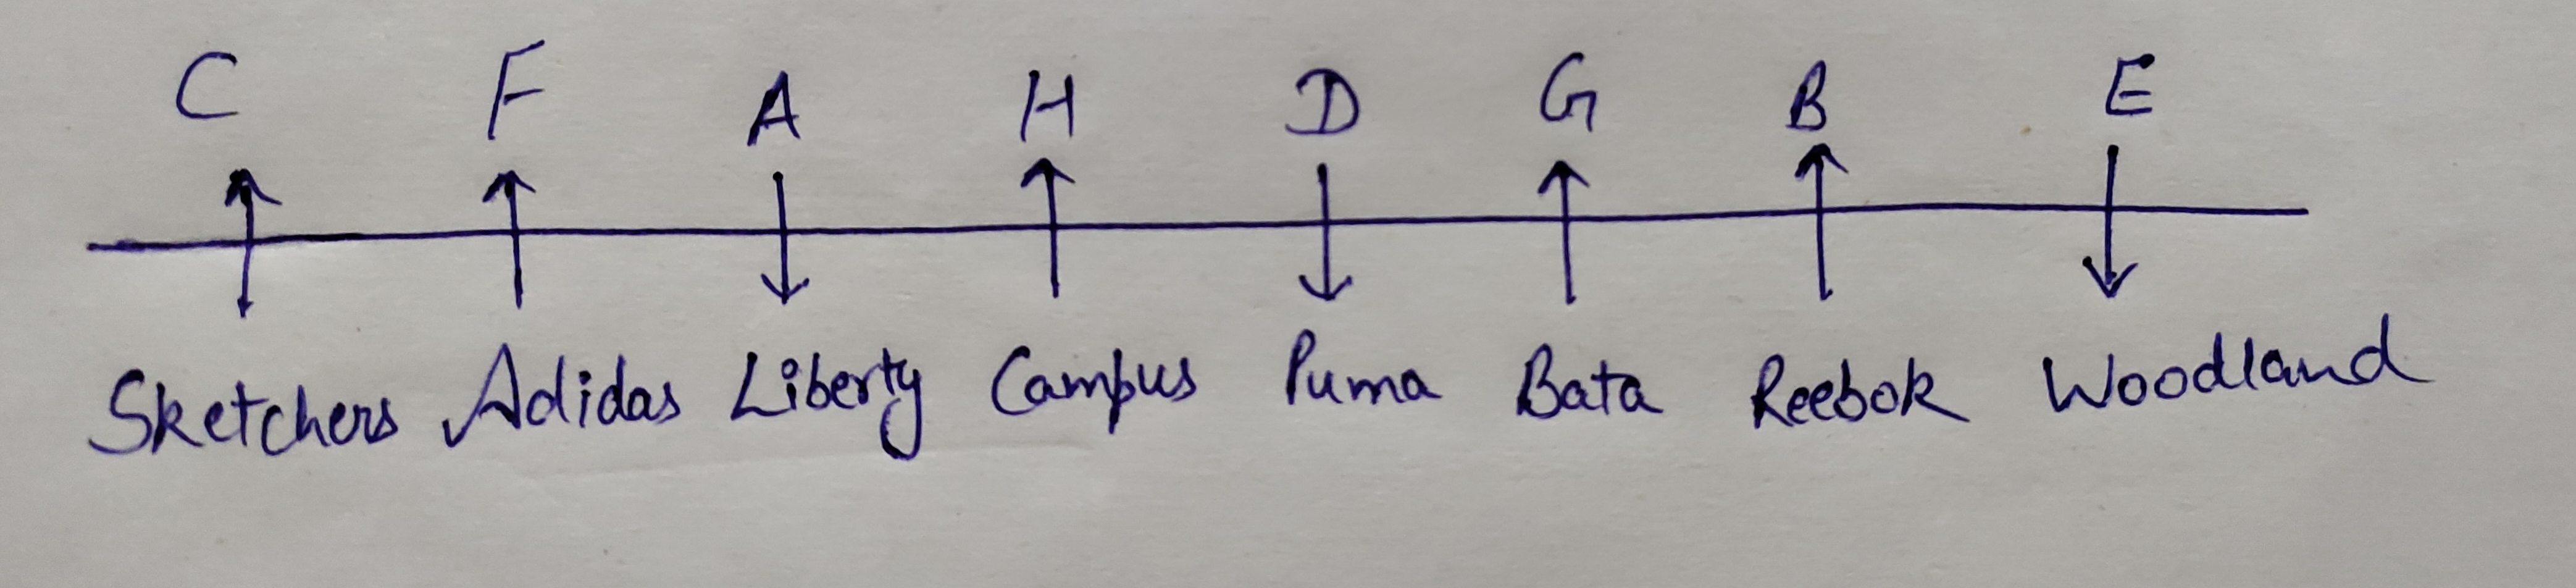 C F A H D G B E
Sketchers Adidas Liberty Campus Puma Bata Reebok Woodland